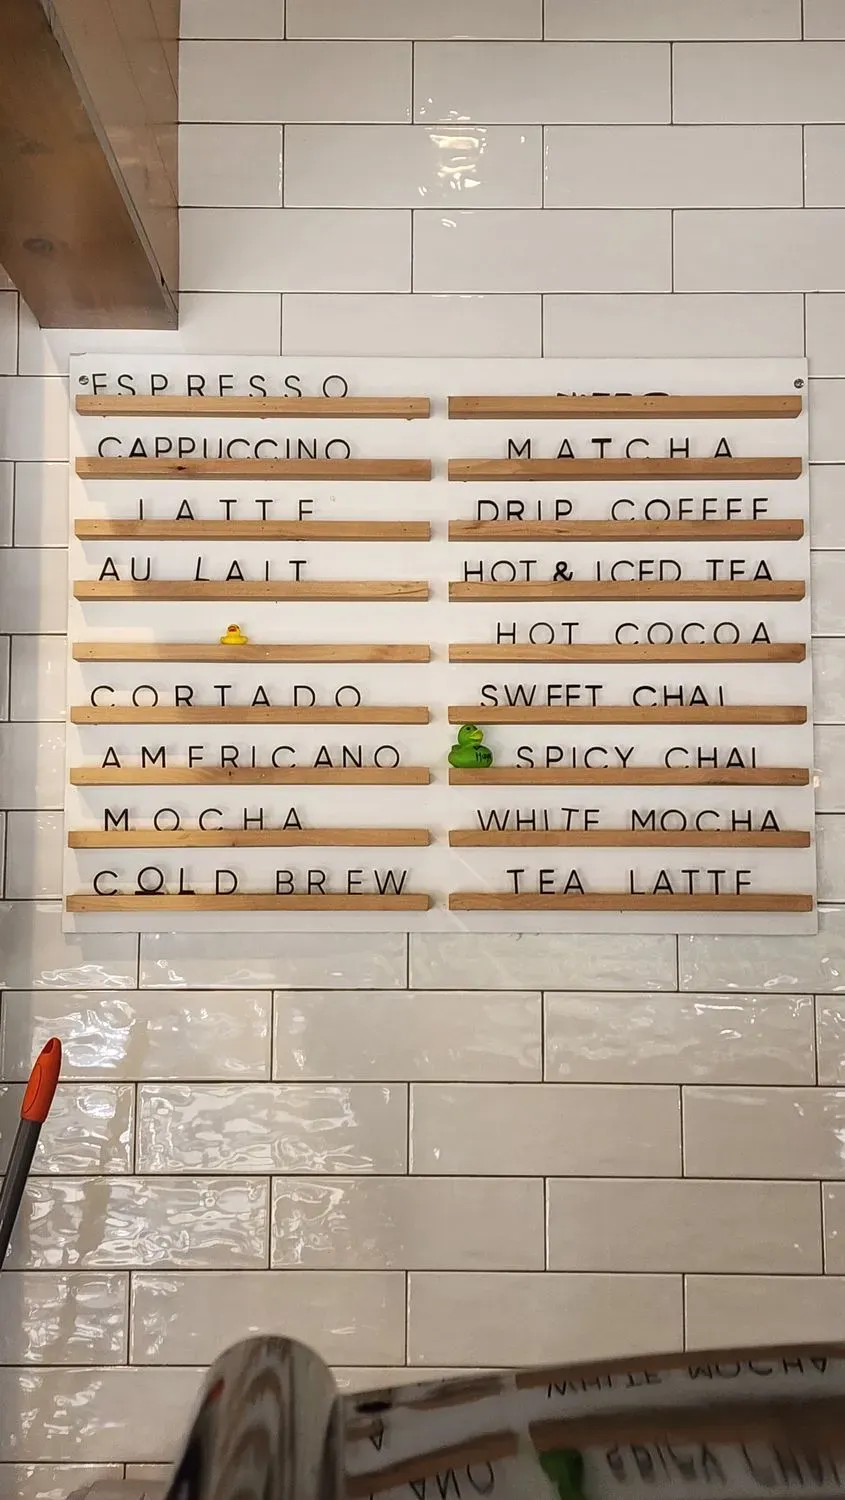 ESPRESSO
CAPPUCCINO
LATTE
AU LAIT
CORTADO
AMERICANO
MOCHA
COLD BREW
NITRO
MATCHA
DRIP COFFEE
HOT & ICED TEA
HOT COCOA
SWEET CHAI
SPICY CHAI
WHITE MOCHA
TEA LATTE